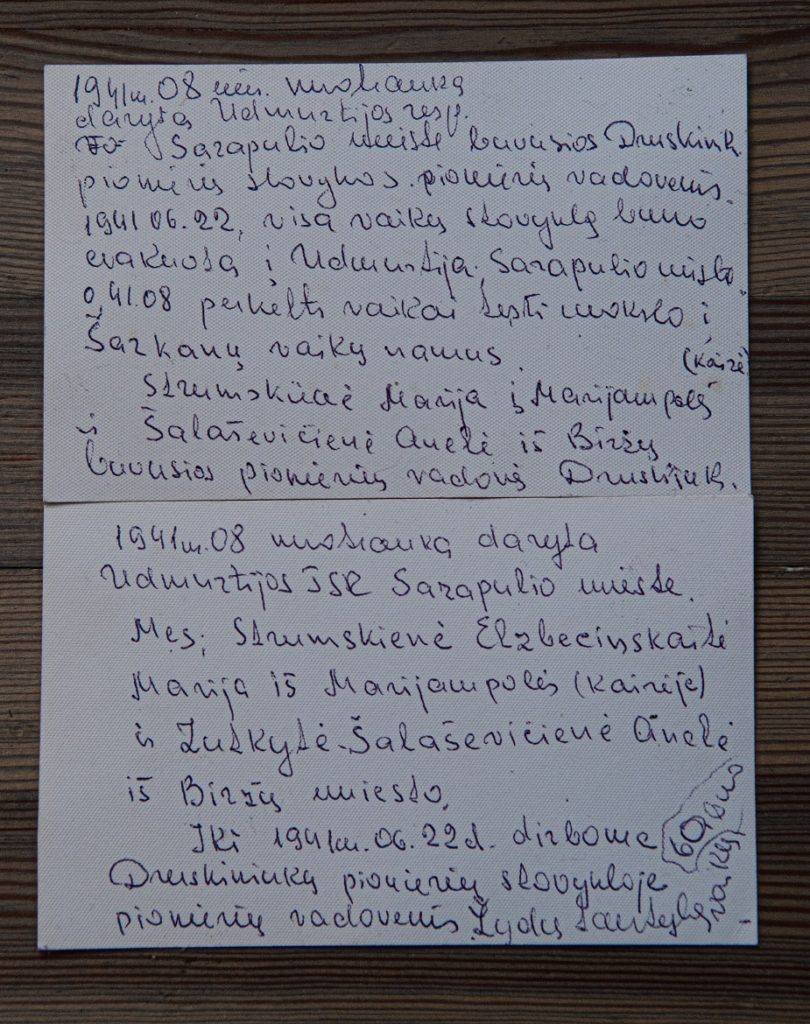 1941m. 08 mėn. nuotrauka
daryta Udmurtijos resp.
Sarapulio mieste buvusios Druskinik.
pionierių stovyklos pionierių vadovėmis.
1941 06.22, visa vaikų stovykla buvo
evakuota į Udmurtija, Sarapulio miesto
o, 41.08 perkelti vaikai tęsti mokslo į
Šarkanų vaikų namus.
(Kairė
Strumskienė Marija iš Marijampolės
ir Šalaševičienė Anelė iš Biržų
buvusios pionierių vadovės Druskijnk.
1941m.08 nuotrauka daryta
Udmurtijos TSR Sarapulio mieste.
Mes; Strumskienė Elzbecinskaitė
Marija iš Marijampolės (Kairėje)
ir Zutkytė-Šalaševičienė Anelė
iš Biržų miesto,
Iki 1941m.06.22d. dirbome
Druskininkų pionierių stovykloje
pionierių vadovėmis Žydų tautybę
60 buvo
vaikų